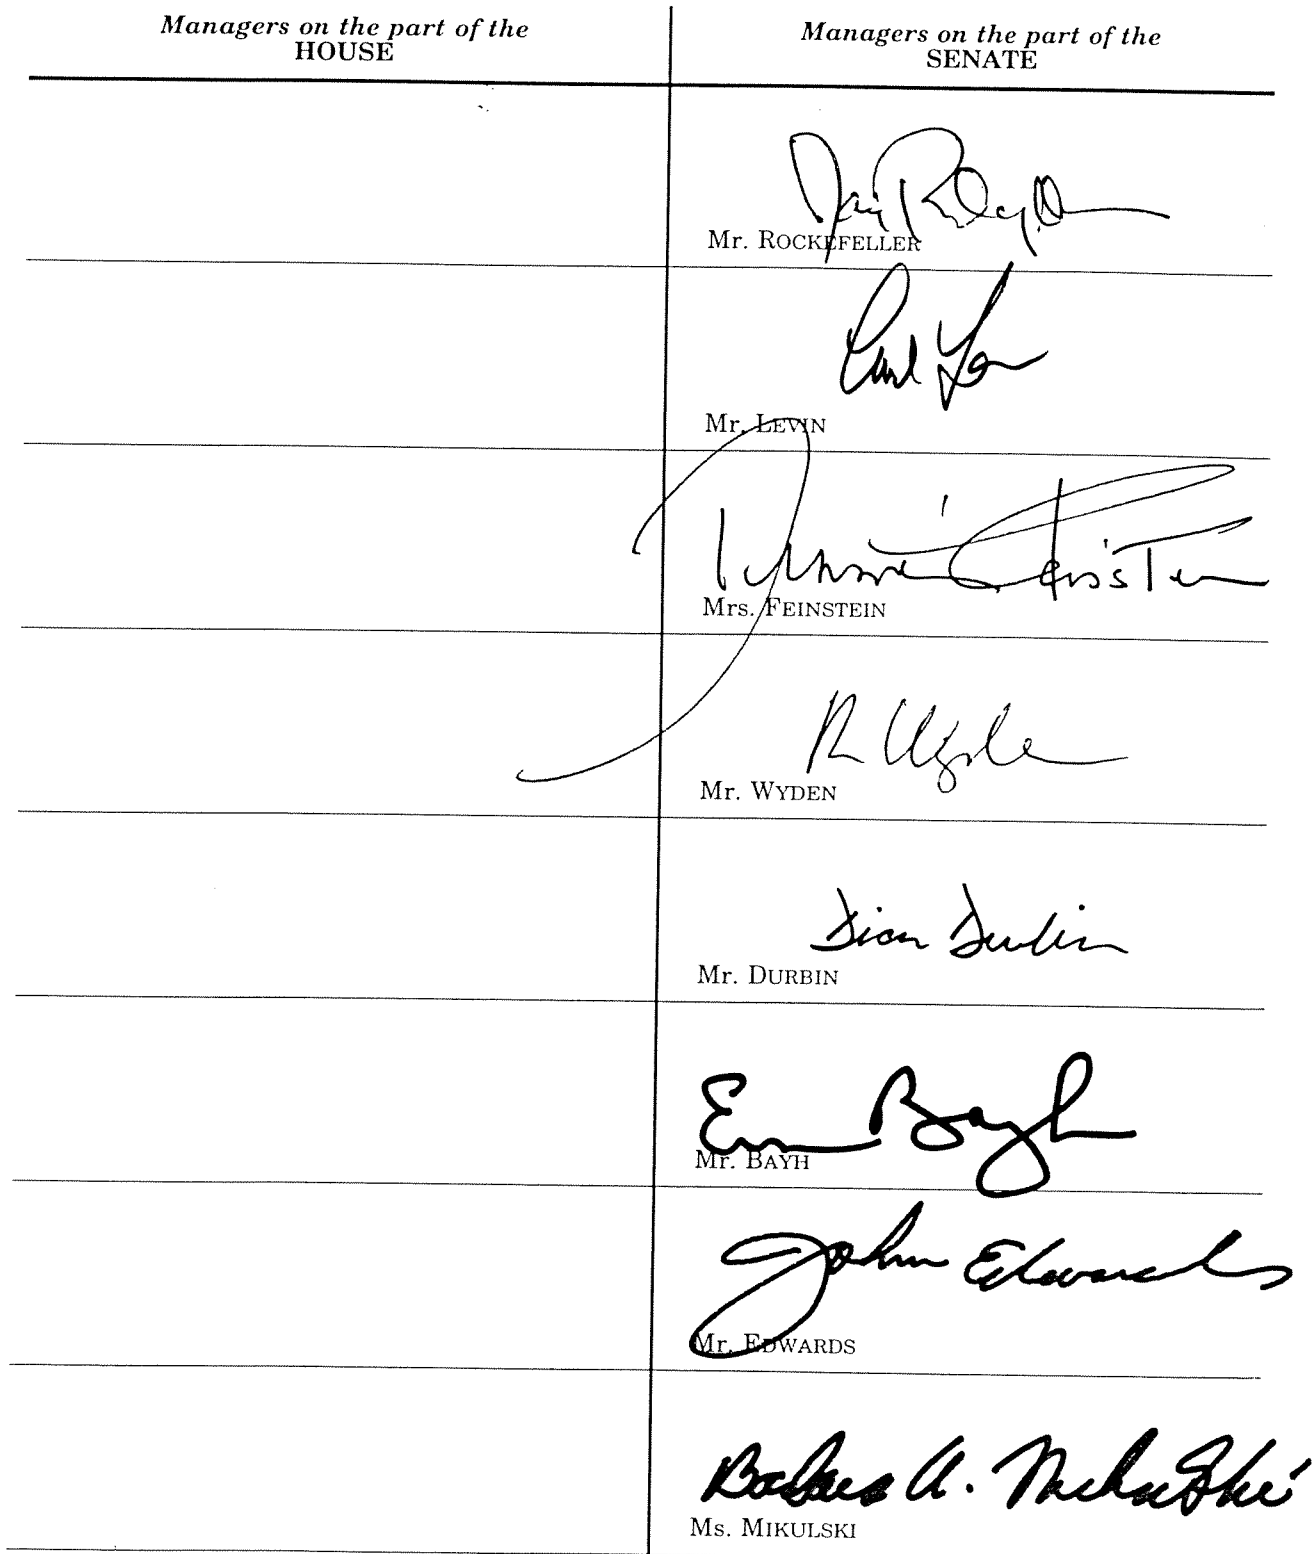 Managers on the part of the
HOUSE
Managers on the part of the
SENATE
Jay Rockefeller
Mr. ROCKEFELLER
Carl Levin
Mr. LEVIN
Dianne Feinstein
Mrs. FEINSTEIN
Ron Wyden
Mr. WYDEN
Dick Durbin
Mr. DURBIN
Evan Bayh
Mr. BAYH
John Edwards
Mr. EDWARDS
Barbara A. Mikulski
Ms. MIKULSKI